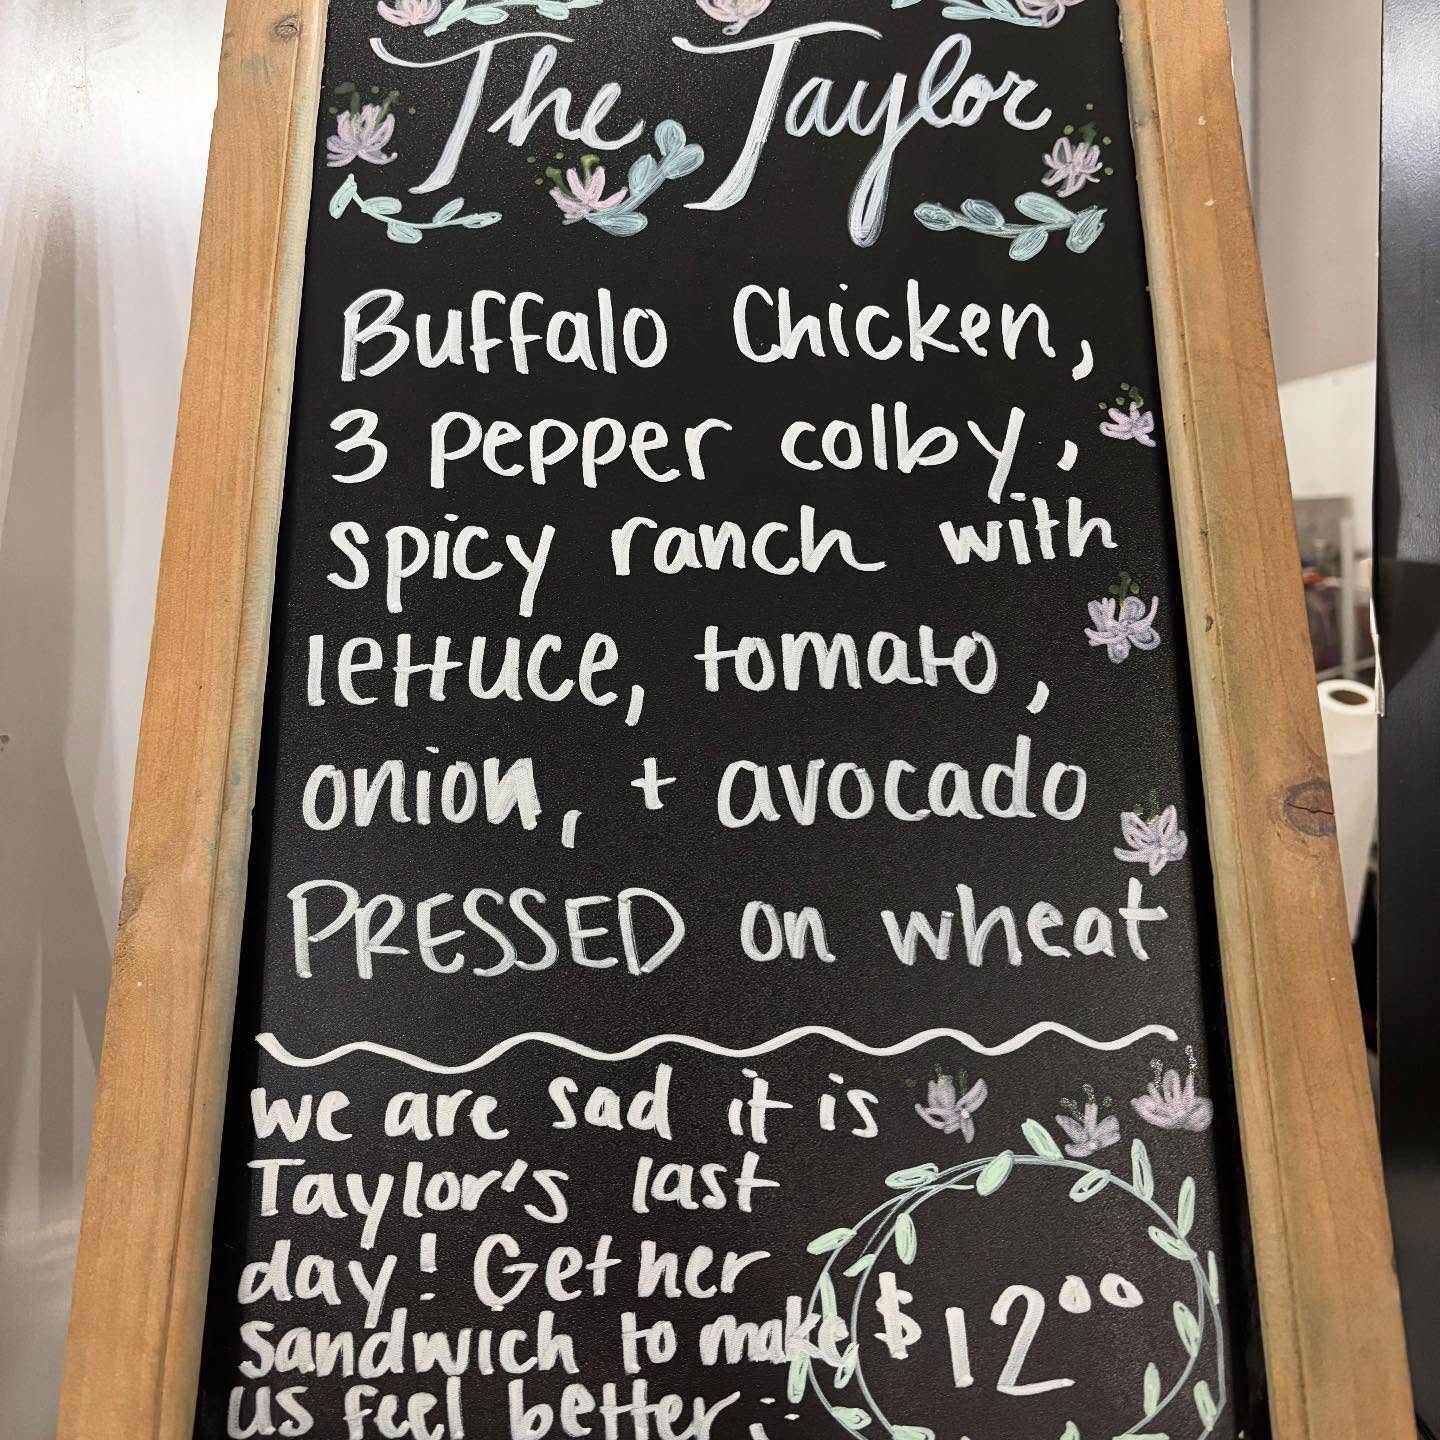 The Taylor
Buffalo Chicken,
3 pepper colby,
spicy ranch with
lettuce, tomato,
onion, + avocado
PRESSED on wheat
we are sad it is
Taylor's last
day! Get her
sandwich to make
us feel better
$12.00